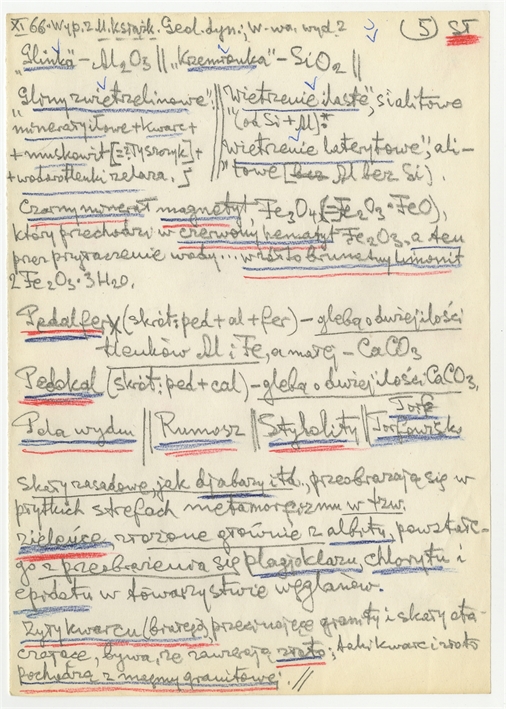 XI 66. Wyp. z M. Książk. Geol. dyn.; W-wa, wyd. 2 (5) ST
"Glinka" – Al2O3 || "Krzemionka" – SiO2 ||
"Gliny zwietrzelinowe": minerały iłowe + kwarc +
+ muskowit [= łyszczyk] +
+ wodorotlenki żelaza.
"Wietrzenie ilaste", sialitowe
(od Si + Al).
"Wietrzenie laterytowe", ali-
towe [Al bez Si].
Czarny minerał magnetyt, Fe3O4 (= Fe2O3·FeO),
który przechodzi w czerwony hematyt Fe2O3, a ten
przy przyłączeniu wody... w żółto brunatny limonit
2Fe2O3·3H2O.
Pedalfer (skrót: ped + al + fer) – gleba o dużej ilości
tlenków Al i Fe, a małej – CaCO3
Pedokal (skrót: ped + cal) – gleba o dużej ilości CaCO3.
Pola wydm || Rumosz || Stylolity || Torf
Torfowisko
Skały zasadowe, jak diabazy itd., przeobrażają się w
płytkich strefach metamorfizmu w tzw.
zieleńce, złożone głównie z albitu, powstałe-
go z przeobrażenia się plagioklazu, chlorytu i
epidotu w towarzystwie węglanów.
Żyły kwarcu (białego), przecinające granity i skały ota-
czające, bywa, że zawierają złoto; taki kwarc i złoto
pochodzą z magmy granitowej. //